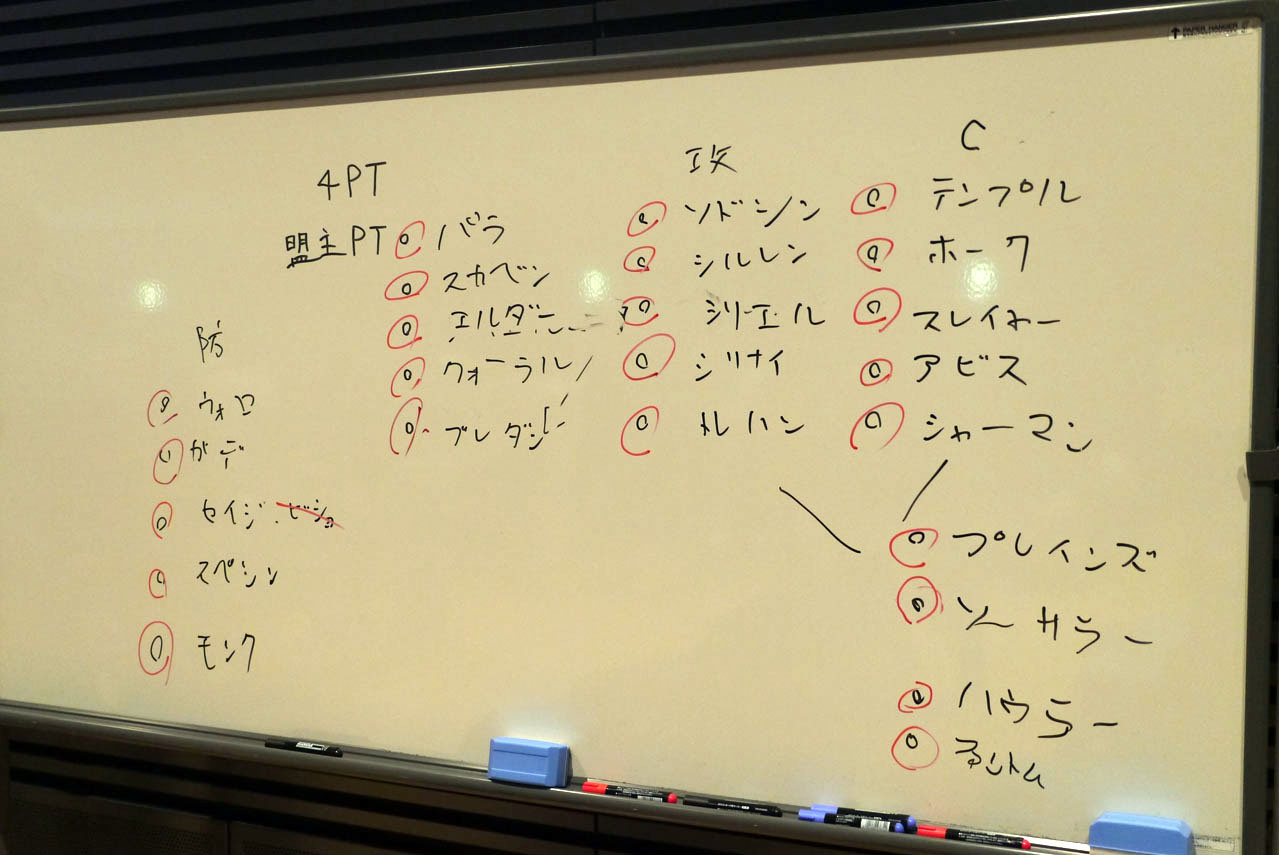 4PT
盟主PT
バラ
スカベン
エルダー
クォーラル
プレダシ
防
ウォロ
ガデ
セイジ・ビショ
スペシン
モンク
攻
ソドシン
シルレン
シリエル
シリナイ
トレハン
C
テンプル
ホーク
スレイヤー
アビス
シャーマン
プレインズ
ソーサラー
ハウラー